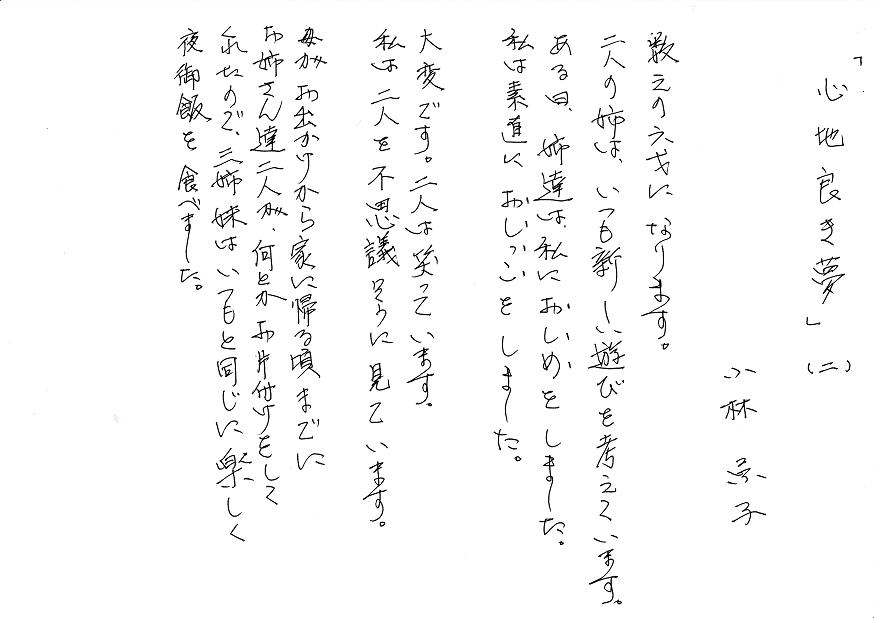 「心地良き夢」(二)
小林 京子
数えの六才になります。
二人の姉は、いつも新しい遊びを考えています。
ある日、姉達は私におしめをしました。
私は素直におしっこをしました。
大変です。二人は笑っています。
私は二人を不思議そうに見ています。
母がお出かけから家に帰る頃までに
お姉さん達二人が、何とかお片付けをして
くれたので、三姉妹はいつもと同じに楽しく
夜御飯を食べました。